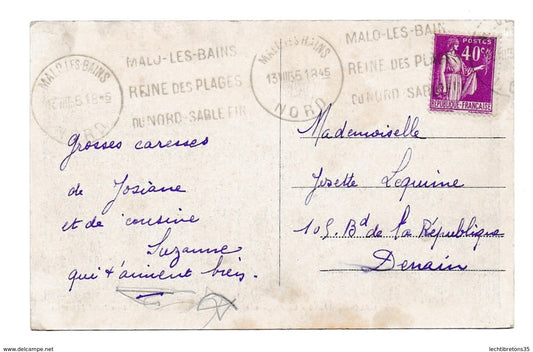 MALO-LES-BAINS
REINE DES PLAGES
DU NORD-SABLE FIN
MALO LES BAINS
13 VIII 35 18 45
NORD
MALO-LES-BAINS
MALO-LES-BAIN
REINE DES
DU NORD-SABLE
POSTES
40c
REPUBLIQUE-FRANÇAISE
Grosses caresses
de Josiane
et de cousine
Suzanne
qui t'aiment bien.
Mademoiselle
Josette Lequime
105. Bd de la République
Denain
www.delcampe.net
lechtibretons35